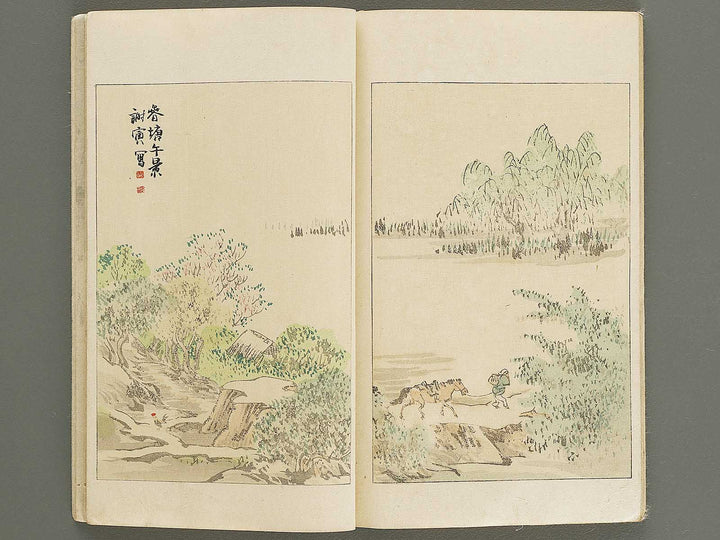 春塘午景
謝寅寫